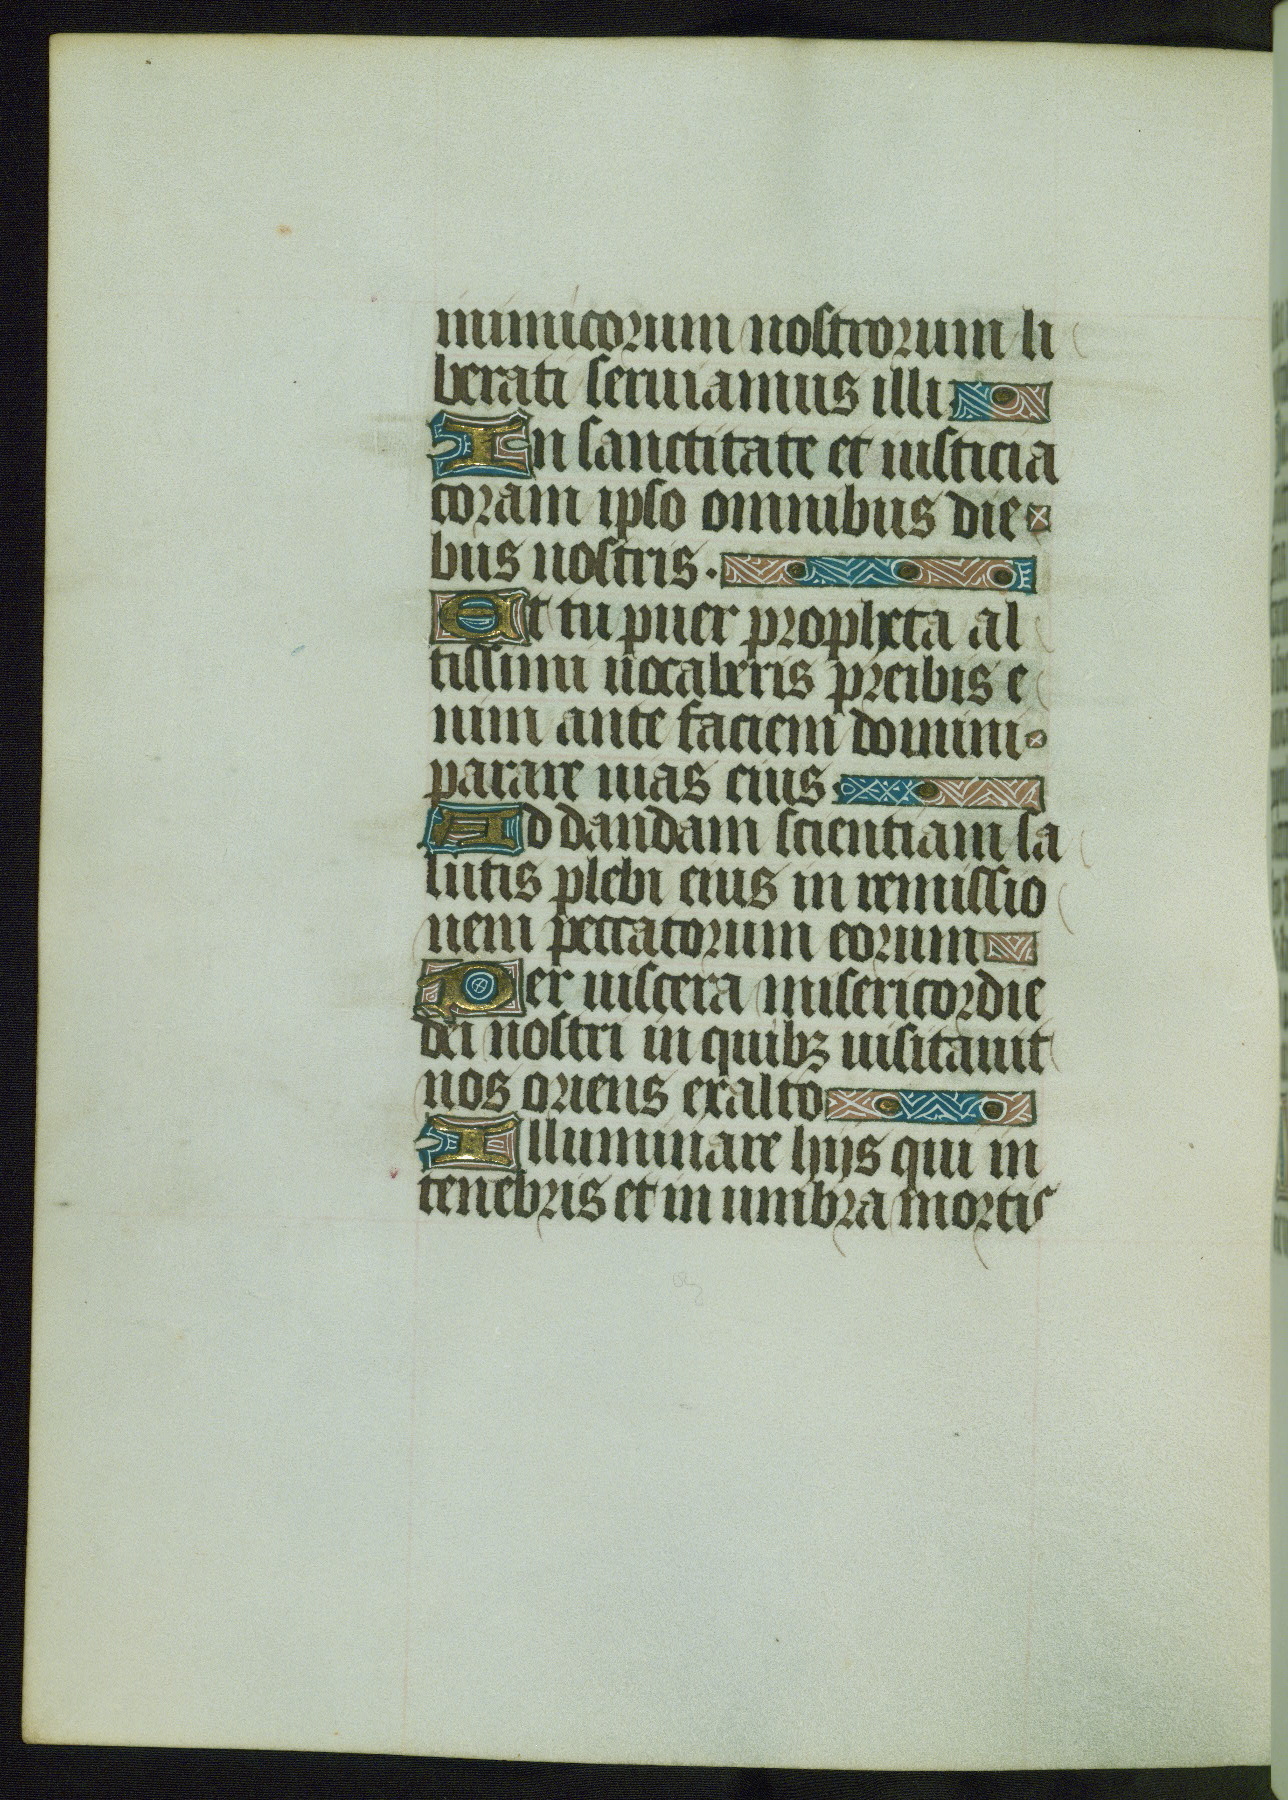 inimicorum nostrorum li
berati seruiamus illi
In sanctitate et iusticia
coram ipso omnibus die
bus nostris.
Et tu puer propheta al
tissimi uocaberis preibis e
nim ante faciem domini
parare uias eius.
Ad dandam scientiam sa
lutis plebi eius in remissio
nem peccatorum eorum
Per uiscera misericordie
dei nostri in quibꝫ uisitauit
nos oriens exalto
Illuminare hijs qui in
tenebris et in umbra mortis